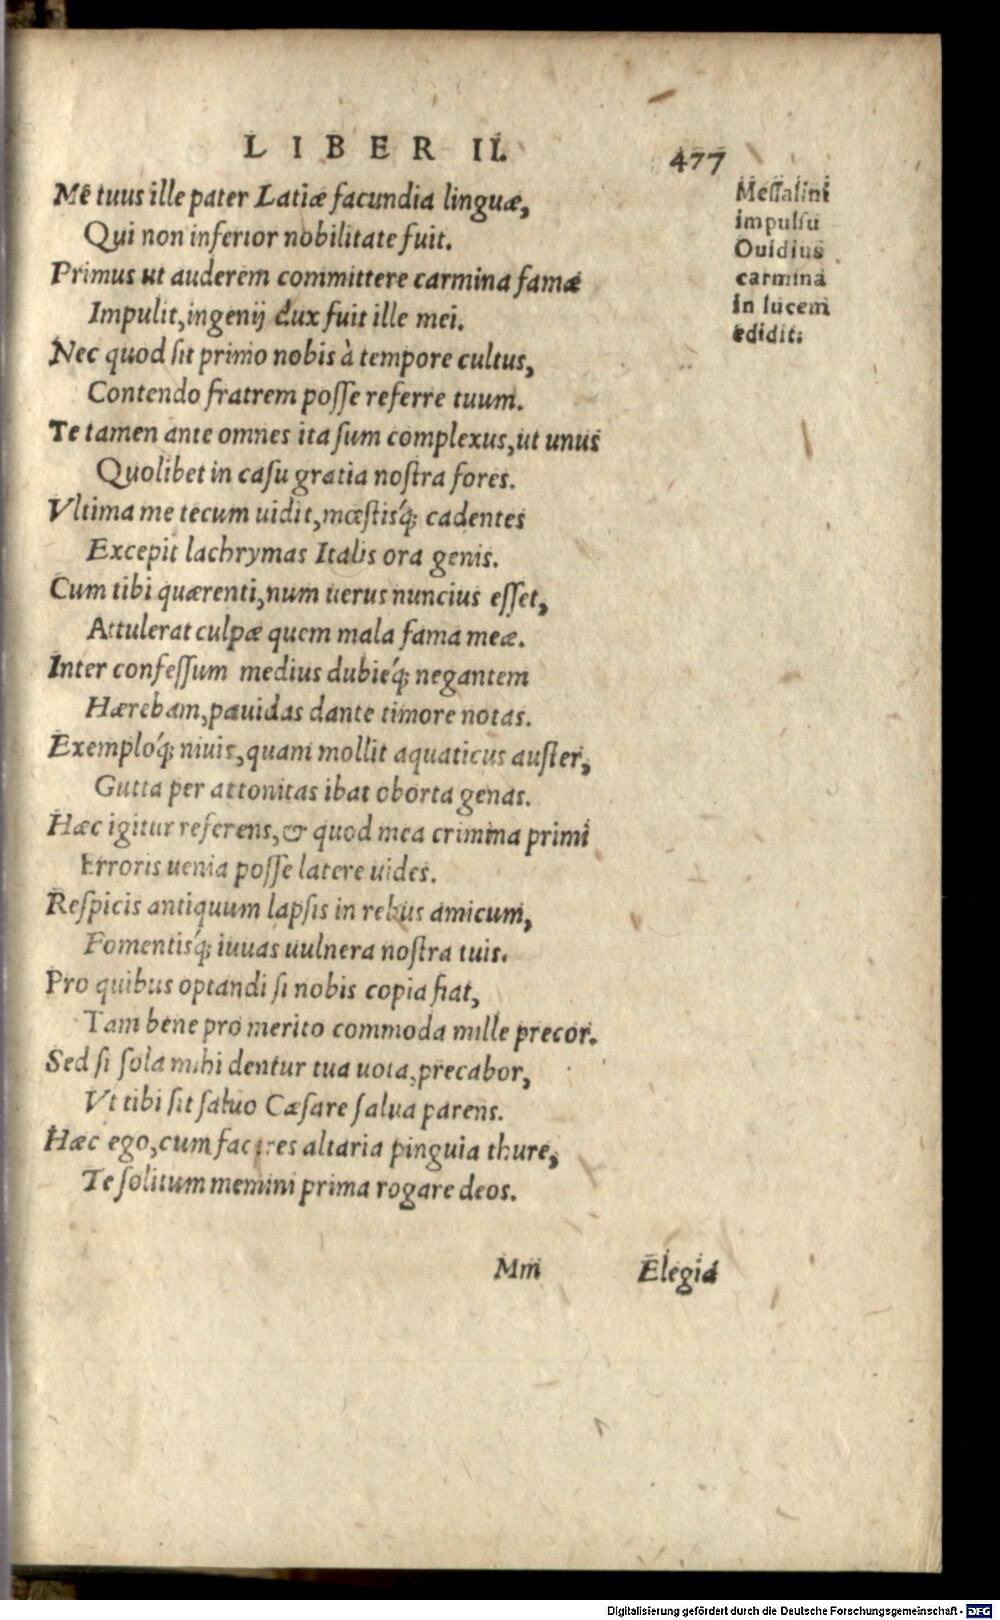 LIBER II.
477
Mê tuus ille pater Latiæ facundia linguæ,
Qui non inferior nobilitate fuit.
Primus ut auderem committere carmina famæ
Impulit, ingenij dux fuit ille mei.
Nec quod sit primo nobis à tempore cultus,
Contendo fratrem posse referre tuum.
Te tamen ante omnes ita sum complexus, ut unus
Quolibet in casu gratia nostra fores.
Vltima me tecum uidit, mœstisq́; cadentes
Excepit lachrymas Italis ora genis.
Cum tibi quærenti, num uerus nuncius esset,
Attulerat culpæ quem mala fama meæ.
Inter confessum medius dubieq́; negantem
Hærebam, pauidas dante timore notas.
Exemploq́; niuis, quam mollit aquaticus auster,
Gutta per attonitas ibat oborta genas.
Hæc igitur referens, & quod mea crimina primi
Erroris uenia posse latere uides.
Respicis antiquum lapsis in rebus amicum,
Fomentisq́; iuuas uulnera nostra tuis.
Pro quibus optandi si nobis copia fiat,
Tam bene pro merito commoda mille precor.
Sed si sola mihi dentur tua uota, precabor,
Vt tibi sit saluo Cæsare salua parens.
Hæc ego, cum faceres altaria pinguia thure,
Te solitum memini prima rogare deos.
Messalini
impulsu
Ouidius
carmina
in lucem
edidit.
Mm
Elegia
Digitalisierung gefördert durch die Deutsche Forschungsgemeinschaft - DFG